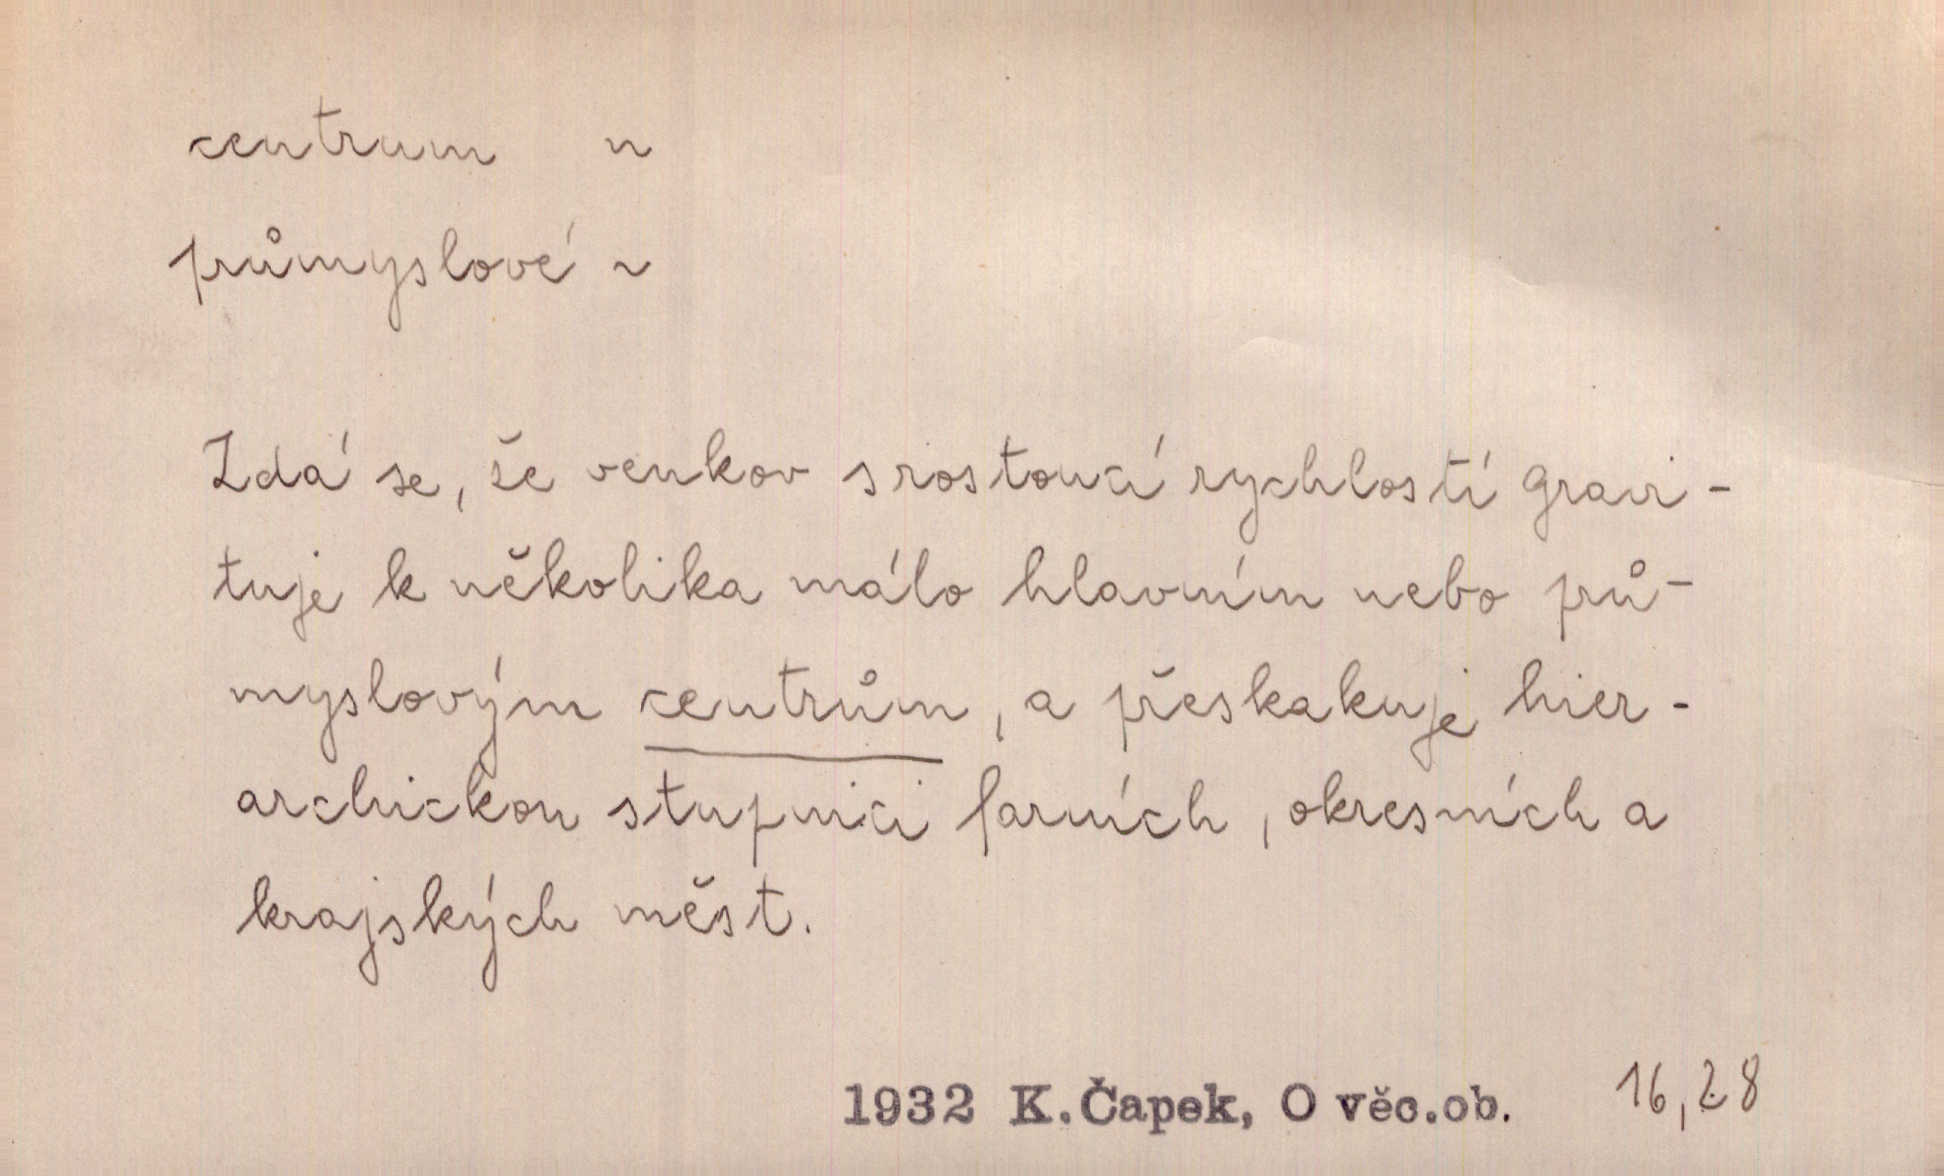 centrum n
průmyslové ~
Zdá se, že venkov s rostoucí rychlostí gravi-
tuje k několika málo hlavním nebo prů-
myslovým centrům, a přeskakuje hier-
archickou stupnici farních, okresních a
krajských měst.
1932 K. Čapek, O věc.ob. 16,28